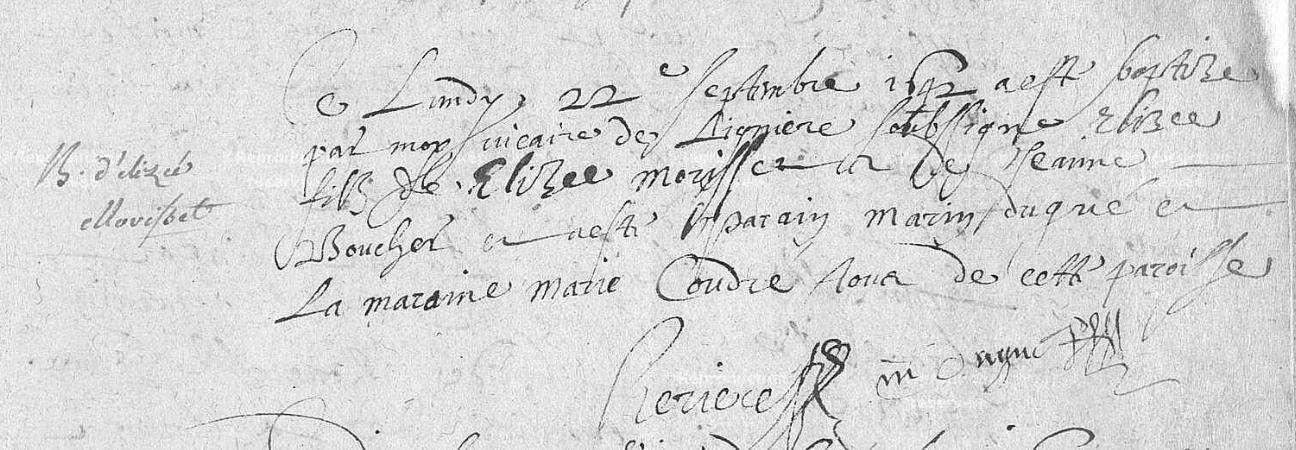 B. d'élizée
Morisset
Ce Lundy 22e septembre 1642 a esté baptizé
par moy vicaire de Ligniere soubssigné Elizee
filz de Elizee morisset et de Jeanne
Boucher et a esté le parain marin duqué et
La maraine marie Coudre tous de cette paroisse
m duqué